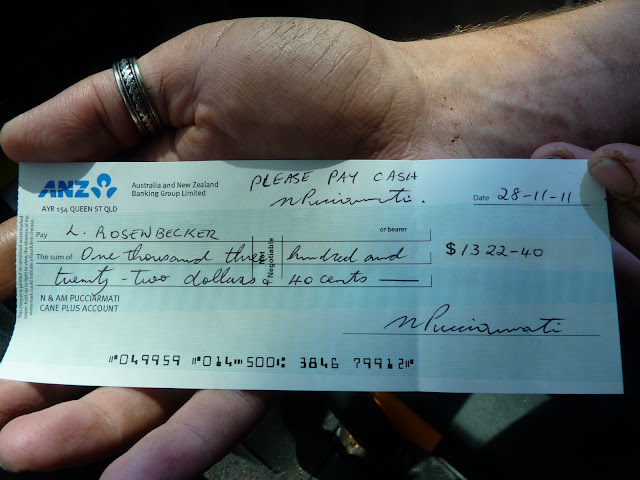 PLEASE PAY CASH
N Pucciarmati.
ANZ
Australia and New Zealand
Banking Group Limited
AYR 154 QUEEN ST QLD
Date 28-11-11
Pay L. ROSENBECKER or bearer
The sum of One thousand three hundred and
twenty-two dollars & 40 cents
Not
Negotiable
$1322-40
N & AM PUCCIARMATI
CANE PLUS ACCOUNT
N Pucciarmati
⑈049959 ⑈014⑉500⑆ 3846 79912⑈